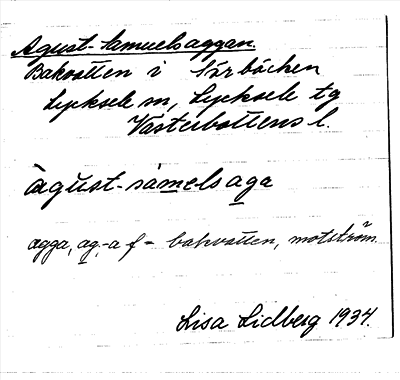 Agust-Samuelsaggan.
Bakvatten i Sörbäcken
Lycksele sn, Lycksele tg
Västerbottens l.
àgust-sàmelsaga
agga, ag-a f = bakvatten, motström
Lisa Lidberg 1934.